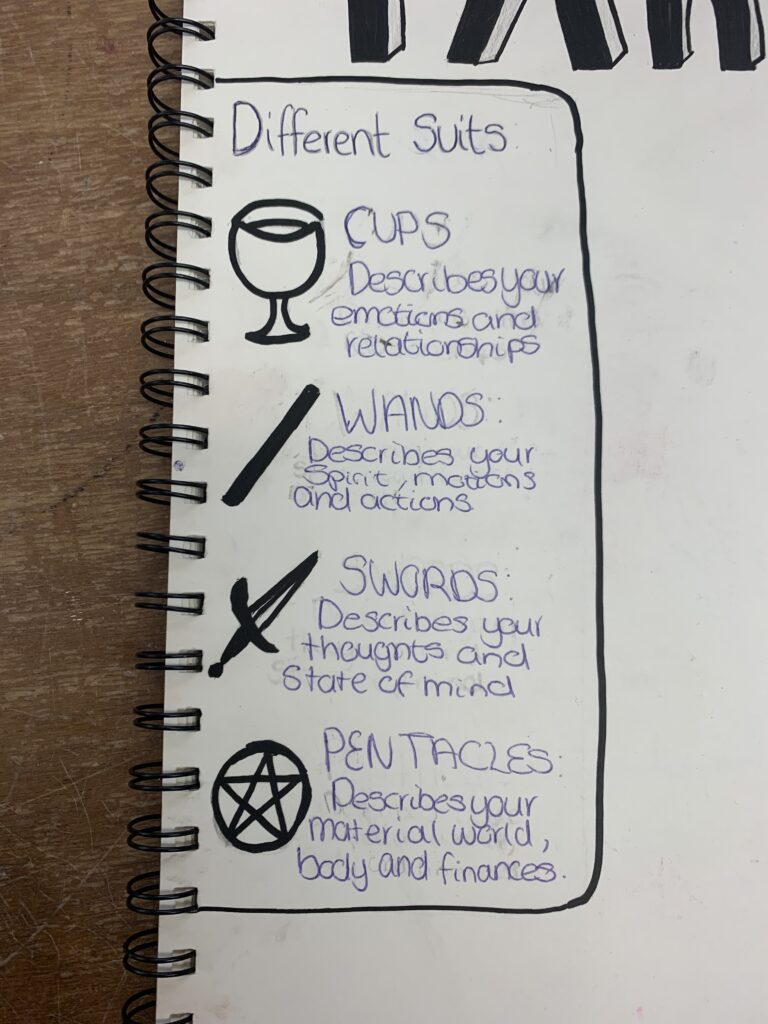 Different Suits
CUPS
Describes your
emotions and
relationships
WANDS:
Describes your
Spirit, motions
and actions
SWORDS:
Describes your
thoughts and
State of mind
PENTACLES:
Describes your
material world,
body and finances.